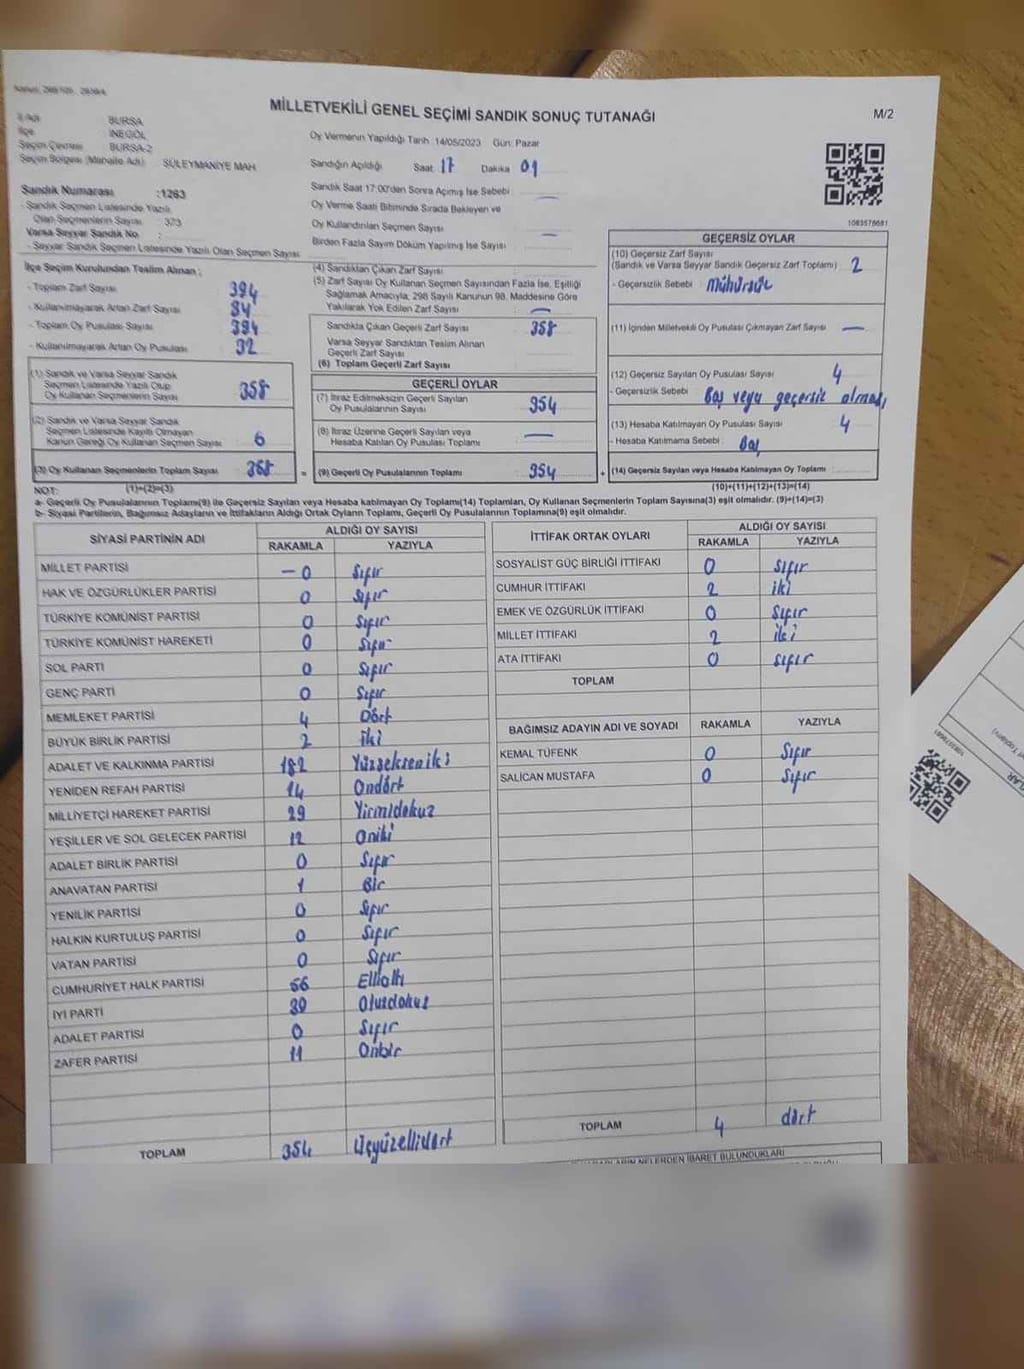 MİLLETVEKİLİ GENEL SEÇİMİ SANDIK SONUÇ TUTANAĞI
M/2
İl Adı BURSA
İlçe İNEGÖL
Seçim Çevresi BURSA-2
Seçim Bölgesi (Mahalle Adı) SÜLEYMANİYE MAH
Sandık Numarası :1263
- Sandık Seçmen Listesinde Yazılı
Olan Seçmenlerin Sayısı : 373
Varsa Seyyar Sandık No :
- Seyyar Sandık Seçmen Listesinde Yazılı Olan Seçmen Sayısı
Oy Vermenin Yapıldığı Tarih :14/05/2023 Gün: Pazar
Sandığın Açıldığı Saat 17 Dakika 01
Sandık Saat 17:00'den Sonra Açımış İse Sebebi : —
Oy Verme Saati Bitiminde Sırada Bekleyen ve
Oy Kullandırılan Seçmen Sayısı : —
Birden Fazla Sayım Döküm Yapılmış İse Sayısı
1083576681
İlçe Seçim Kurulundan Teslim Alınan ;
- Toplam Zarf Sayısı 394
- Kullanılmayarak Artan Zarf Sayısı 34
- Toplam Oy Pusulası Sayısı 394
- Kullanılmayarak Artan Oy Pusulası 32
(1) Sandık ve Varsa Seyyar Sandık
Seçmen Listesinde Yazılı Olup
Oy Kullanan Seçmenlerin Sayısı 358
(2) Sandık ve Varsa Seyyar Sandık
Listesinde Kayıtlı Olmayan
Kanun Gereği Oy Kullanan Seçmen Sayısı : 6
(3) Oy Kullanan Seçmenlerin Toplam Sayısı =
(4) Sandıktan Çıkan Zarf Sayısı
(5) Zarf Sayısı Oy Kullanan Seçmen Sayısından Fazla İse, Eşitliği
Sağlamak Amacıyla; 298 Sayılı Kanunun 98. Maddesine Göre
Yakılarak Yok Edilen Zarf Sayısı : —
Sandıkta Çıkan Geçerli Zarf Sayısı 358
Varsa Seyyar Sandıktan Teslim Alınan
Geçerli Zarf Sayısı
(6) Toplam Geçerli Zarf Sayısı
GEÇERLİ OYLAR
(7) İtiraz Edilmeksizin Geçerli Sayılan
Oy Pusulalarının Sayısı 354
(8) İtiraz Üzerine Geçerli Sayılan veya
Hesaba Katılan Oy Pusulası Toplamı : —
(9) Geçerli Oy Pusulalarının Toplamı : 354 +
GEÇERSİZ OYLAR
(10) Geçersiz Zarf Sayısı
(Sandık ve Varsa Seyyar Sandık Geçersiz Zarf Toplamı) : 2
- Geçersizlik Sebebi : Mühürsüz
(11) İçinden Milletvekili Oy Pusulası Çıkmayan Zarf Sayısı : —
(12) Geçersiz Sayılan Oy Pusulası Sayısı : 4
- Geçersizlik Sebebi : Boş veya geçersiz
(13) Hesaba Katılmayan Oy Pusulası Sayısı : 4
- Hesaba Katılmama Sebebi : Boş
(14) Geçersiz Sayılan veya Hesaba Katılmayan Oy Toplamı :
NOT: (1)+(2)=(3)
(10)+(11)+(12)+(13)=(14)
a- Geçerli Oy Pusulalarının Toplamı(9) ile Geçersiz Sayılan veya Hesaba katılmayan Oy Toplamı(14) Toplamları, Oy Kullanan Seçmenlerin Toplam Sayısına(3) eşit olmalıdır. (9)+(14)=(3)
b- Siyasi Partilerin, Bağımsız Adayların ve İttifakların Aldığı Ortak Oyların Toplamı, Geçerli Oy Pusulalarının Toplamına(9) eşit olmalıdır.
SİYASİ PARTİNİN ADI ALDIĞI OY SAYISI
RAKAMLA YAZIYLA
MİLLET PARTİSİ – 0 Sıfır
HAK VE ÖZGÜRLÜKLER PARTİSİ 0 Sıfır
TÜRKİYE KOMÜNİST PARTİSİ 0 Sıfır
TÜRKİYE KOMÜNİST HAREKETİ 0 Sıfır
SOL PARTİ 0 Sıfır
GENÇ PARTİ 0 Sıfır
MEMLEKET PARTİSİ 4 Dört
BÜYÜK BİRLİK PARTİSİ 2 iki
ADALET VE KALKINMA PARTİSİ 182 Yüzsekseniki
YENİDEN REFAH PARTİSİ 14 Ondört
MİLLİYETÇİ HAREKET PARTİSİ 29 Yirmidokuz
YEŞİLLER VE SOL GELECEK PARTİSİ 12 Oniki
ADALET BİRLİK PARTİSİ 0 Sıfır
ANAVATAN PARTİSİ 1 Bir
YENİLİK PARTİSİ 0 Sıfır
HALKIN KURTULUŞ PARTİSİ 0 Sıfır
VATAN PARTİSİ 0 Sıfır
CUMHURİYET HALK PARTİSİ 56 Ellialtı
İYİ PARTİ 39 Otuzdokuz
ADALET PARTİSİ 0 Sıfır
ZAFER PARTİSİ 11 Onbir
TOPLAM 354 Üçyüzellidört
İTTİFAK ORTAK OYLARI ALDIĞI OY SAYISI
RAKAMLA YAZIYLA
SOSYALİST GÜÇ BİRLİĞİ İTTİFAKI 0 Sıfır
CUMHUR İTTİFAKI 2 iki
EMEK VE ÖZGÜRLÜK İTTİFAKI 0 Sıfır
MİLLET İTTİFAKI 2 iki
ATA İTTİFAKI 0 Sıfır
TOPLAM
BAĞIMSIZ ADAYIN ADI VE SOYADI RAKAMLA YAZIYLA
KEMAL TÜFENK 0 Sıfır
SALİCAN MUSTAFA 0 Sıfır
TOPLAM 4 dört
NELERDEN İBARET BULUNDUKLARI